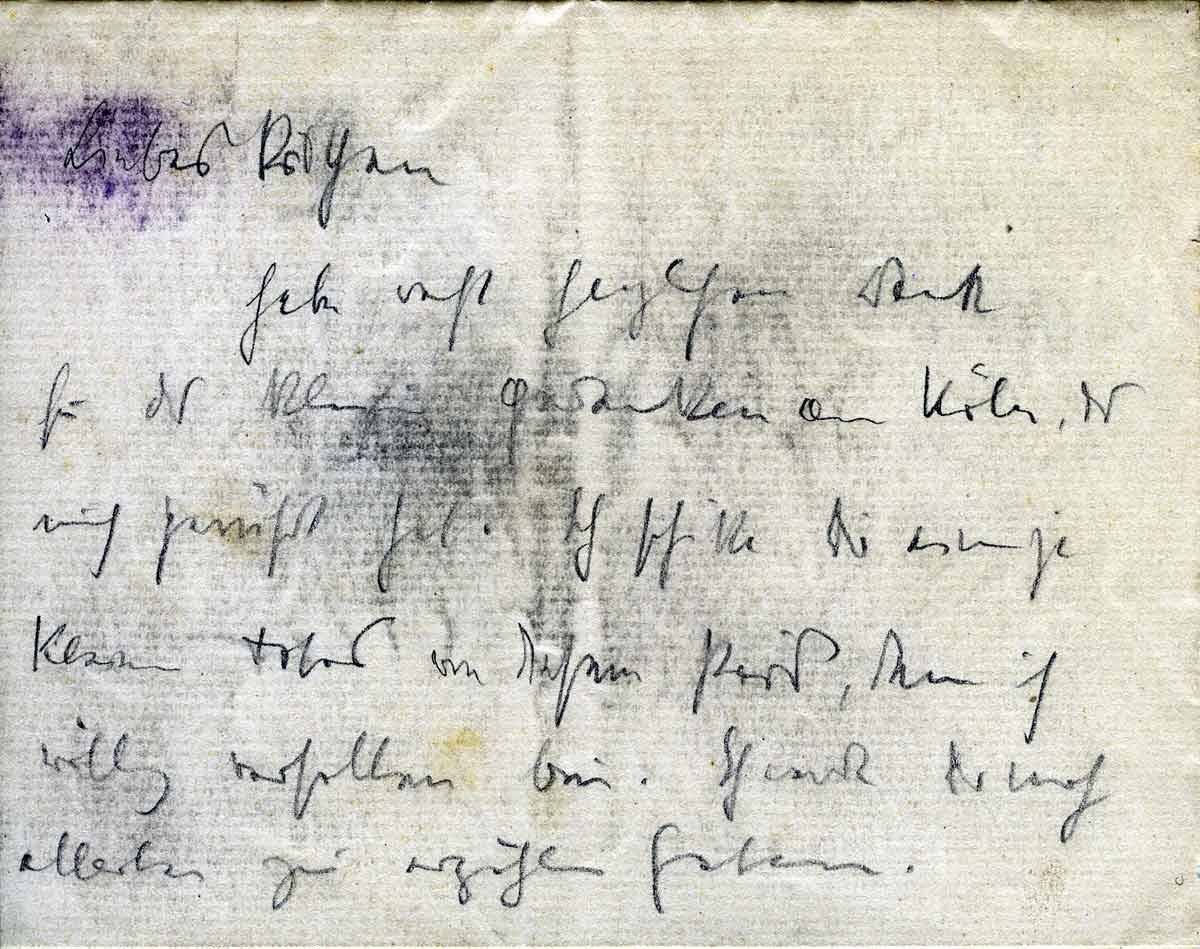 Liebes Röschen
habe recht herzlichen Dank
für das kleine Gedenken an Köln, das
mich gerührt hat. Ich schicke Dir einige
kleine von diesem Paris, dem ich
völlig verfallen bin. Ich werde Dir noch
allerlei zu erzählen haben.